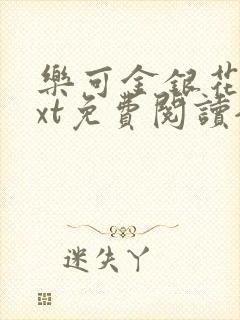 樂可金銀花
xt免費閱讀
迷失丫